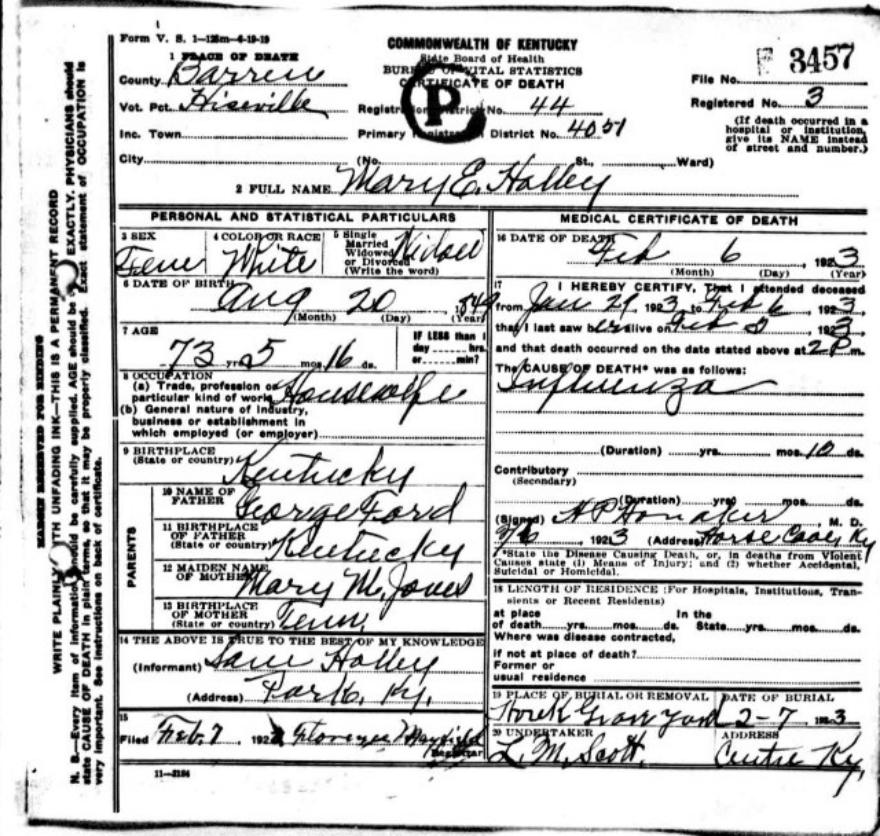 Form V. S. 1—125m—4-19-19
COMMONWEALTH OF KENTUCKY
State Board of Health
BUREAU OF VITAL STATISTICS
CERTIFICATE OF DEATH
P
3457
File No.
1 PLACE OF DEATH
County Barren
Vot. Pct. Hiseville
Registration District No. 44
Registered No. 3
Inc. Town
Primary Registration District No. 4051
(If death occurred in a
hospital or institution,
give its NAME instead
of street and number.)
City (No. St., Ward)
2 FULL NAME Mary E. Holley
PERSONAL AND STATISTICAL PARTICULARS
3 SEX Fem
4 COLOR OR RACE White
5 Single
Married
Widowed
or Divorced
(Write the word)
6 DATE OF BIRTH Aug 20 1849
(Month) (Day) (Year)
7 AGE
73 yrs 5 mos. 16 ds.
IF LESS than 1
day hrs.
or min?
8 OCCUPATION
(a) Trade, profession or
particular kind of work Housewife
(b) General nature of industry,
business or establishment in
which employed (or employer)
9 BIRTHPLACE
(State or country) Kentucky
PARENTS
10 NAME OF
FATHER George Ford
11 BIRTHPLACE
OF FATHER
(State or country) Kentucky
12 MAIDEN NAME
OF MOTHER Mary M. Jones
13 BIRTHPLACE
OF MOTHER
(State or country) Tenn.
14 THE ABOVE IS TRUE TO THE BEST OF MY KNOWLEDGE
(Informant) Sam Holley
(Address) Park, Ky.
15
Filed Feb. 7, 192 Florence
Registrar
11—3184
MEDICAL CERTIFICATE OF DEATH
16 DATE OF DEATH Feb 6, 1923
(Month) (Day) (Year)
17 I HEREBY CERTIFY, That I attended deceased
from Jan 29, 1923, to Feb 6, 1923,
that I last saw her alive on Feb 5, 1923
and that death occurred on the date stated above at 2 P m.
The CAUSE OF DEATH* was as follows:
Influenza
(Duration) yrs. mos. 10 ds.
Contributory
(Secondary)
(Duration) yrs. mos. ds.
(Signed) H P Honaker, M. D.
2/6, 1923 (Address) Horse Cave, Ky
*State the Disease Causing Death, or, in deaths from Violent
Causes state (1) Means of Injury; and (2) whether Accidental,
Suicidal or Homicidal.
18 LENGTH OF RESIDENCE (For Hospitals, Institutions, Tran-
sients or Recent Residents)
at place In the
of death yrs. mos. ds. State yrs. mos. ds.
Where was disease contracted,
if not at place of death?
Former or
usual residence
19 PLACE OF BURIAL OR REMOVAL
Grave Yard
DATE OF BURIAL
2-7 1923
20 UNDERTAKER
L. M. Scott.
ADDRESS
Centre Ky.
MARGIN RESERVED FOR BINDING
WRITE PLAINLY WITH UNFADING INK—THIS IS A PERMANENT RECORD
N. B.—Every item of information should be carefully supplied. AGE should be EXACTLY. PHYSICIANS should
state CAUSE OF DEATH in plain terms, so that it may be properly classified. Exact statement of OCCUPATION is
very important. See instructions on back of certificate.